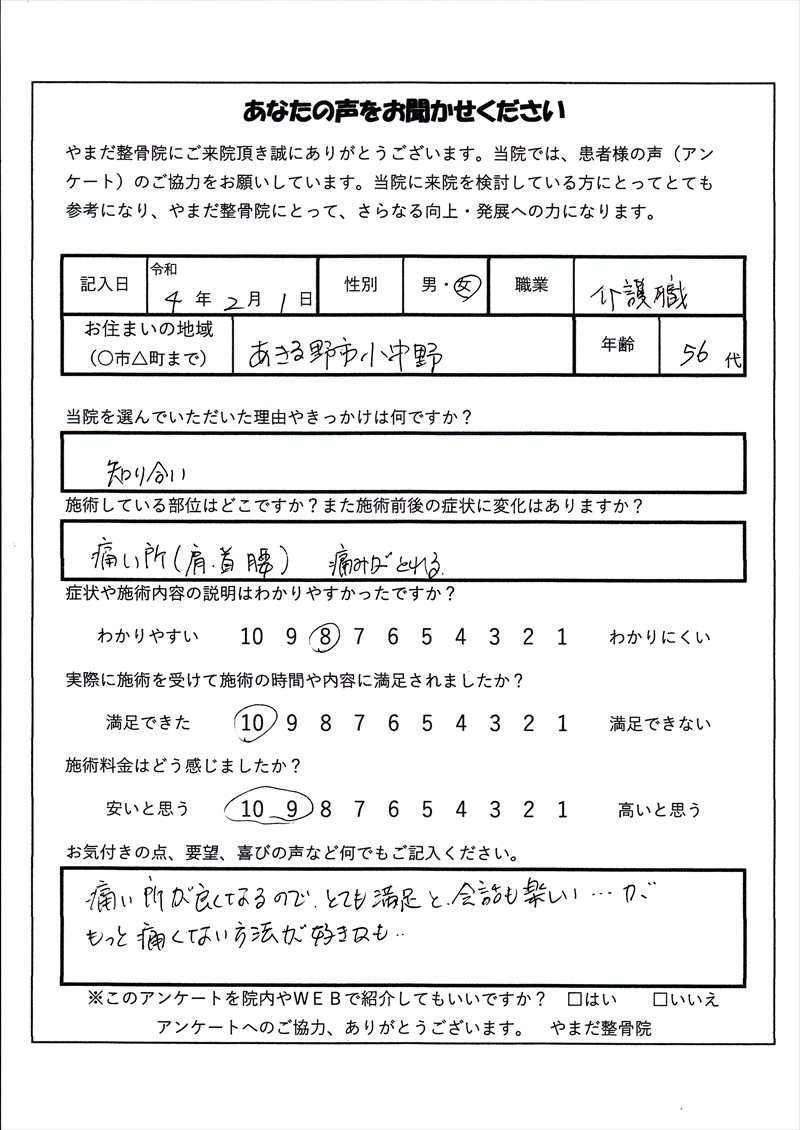 あなたの声をお聞かせください
やまだ整骨院にご来院頂き誠にありがとうございます。当院では、患者様の声（アン
ケート）のご協力をお願いしています。当院に来院を検討している方にとってとても
参考になり、やまだ整骨院にとって、さらなる向上・発展への力になります。
記入日 令和 4 年 2 月 1 日 性別 男・女 職業 介護職
お住まいの地域 （〇市△町まで） あきる野市小中野 年齢 56 代
当院を選んでいただいた理由やきっかけは何ですか？
知り合い
施術している部位はどこですか？また施術前後の症状に変化はありますか？
痛い所(肩.首 腰) 痛みがとれる.
症状や施術内容の説明はわかりやすかったですか？
わかりやすい 10 9 8 7 6 5 4 3 2 1 わかりにくい
実際に施術を受けて施術の時間や内容に満足されましたか？
満足できた 10 9 8 7 6 5 4 3 2 1 満足できない
施術料金はどう感じましたか？
安いと思う 10 9 8 7 6 5 4 3 2 1 高いと思う
お気付きの点、要望、喜びの声など何でもご記入ください。
痛い所が良くなるので、とても満足と、会話も楽しい…が
もっと痛くない方法が好きかも..
※このアンケートを院内やＷＥＢで紹介してもいいですか？ □はい □いいえ
アンケートへのご協力、ありがとうございます。 やまだ整骨院